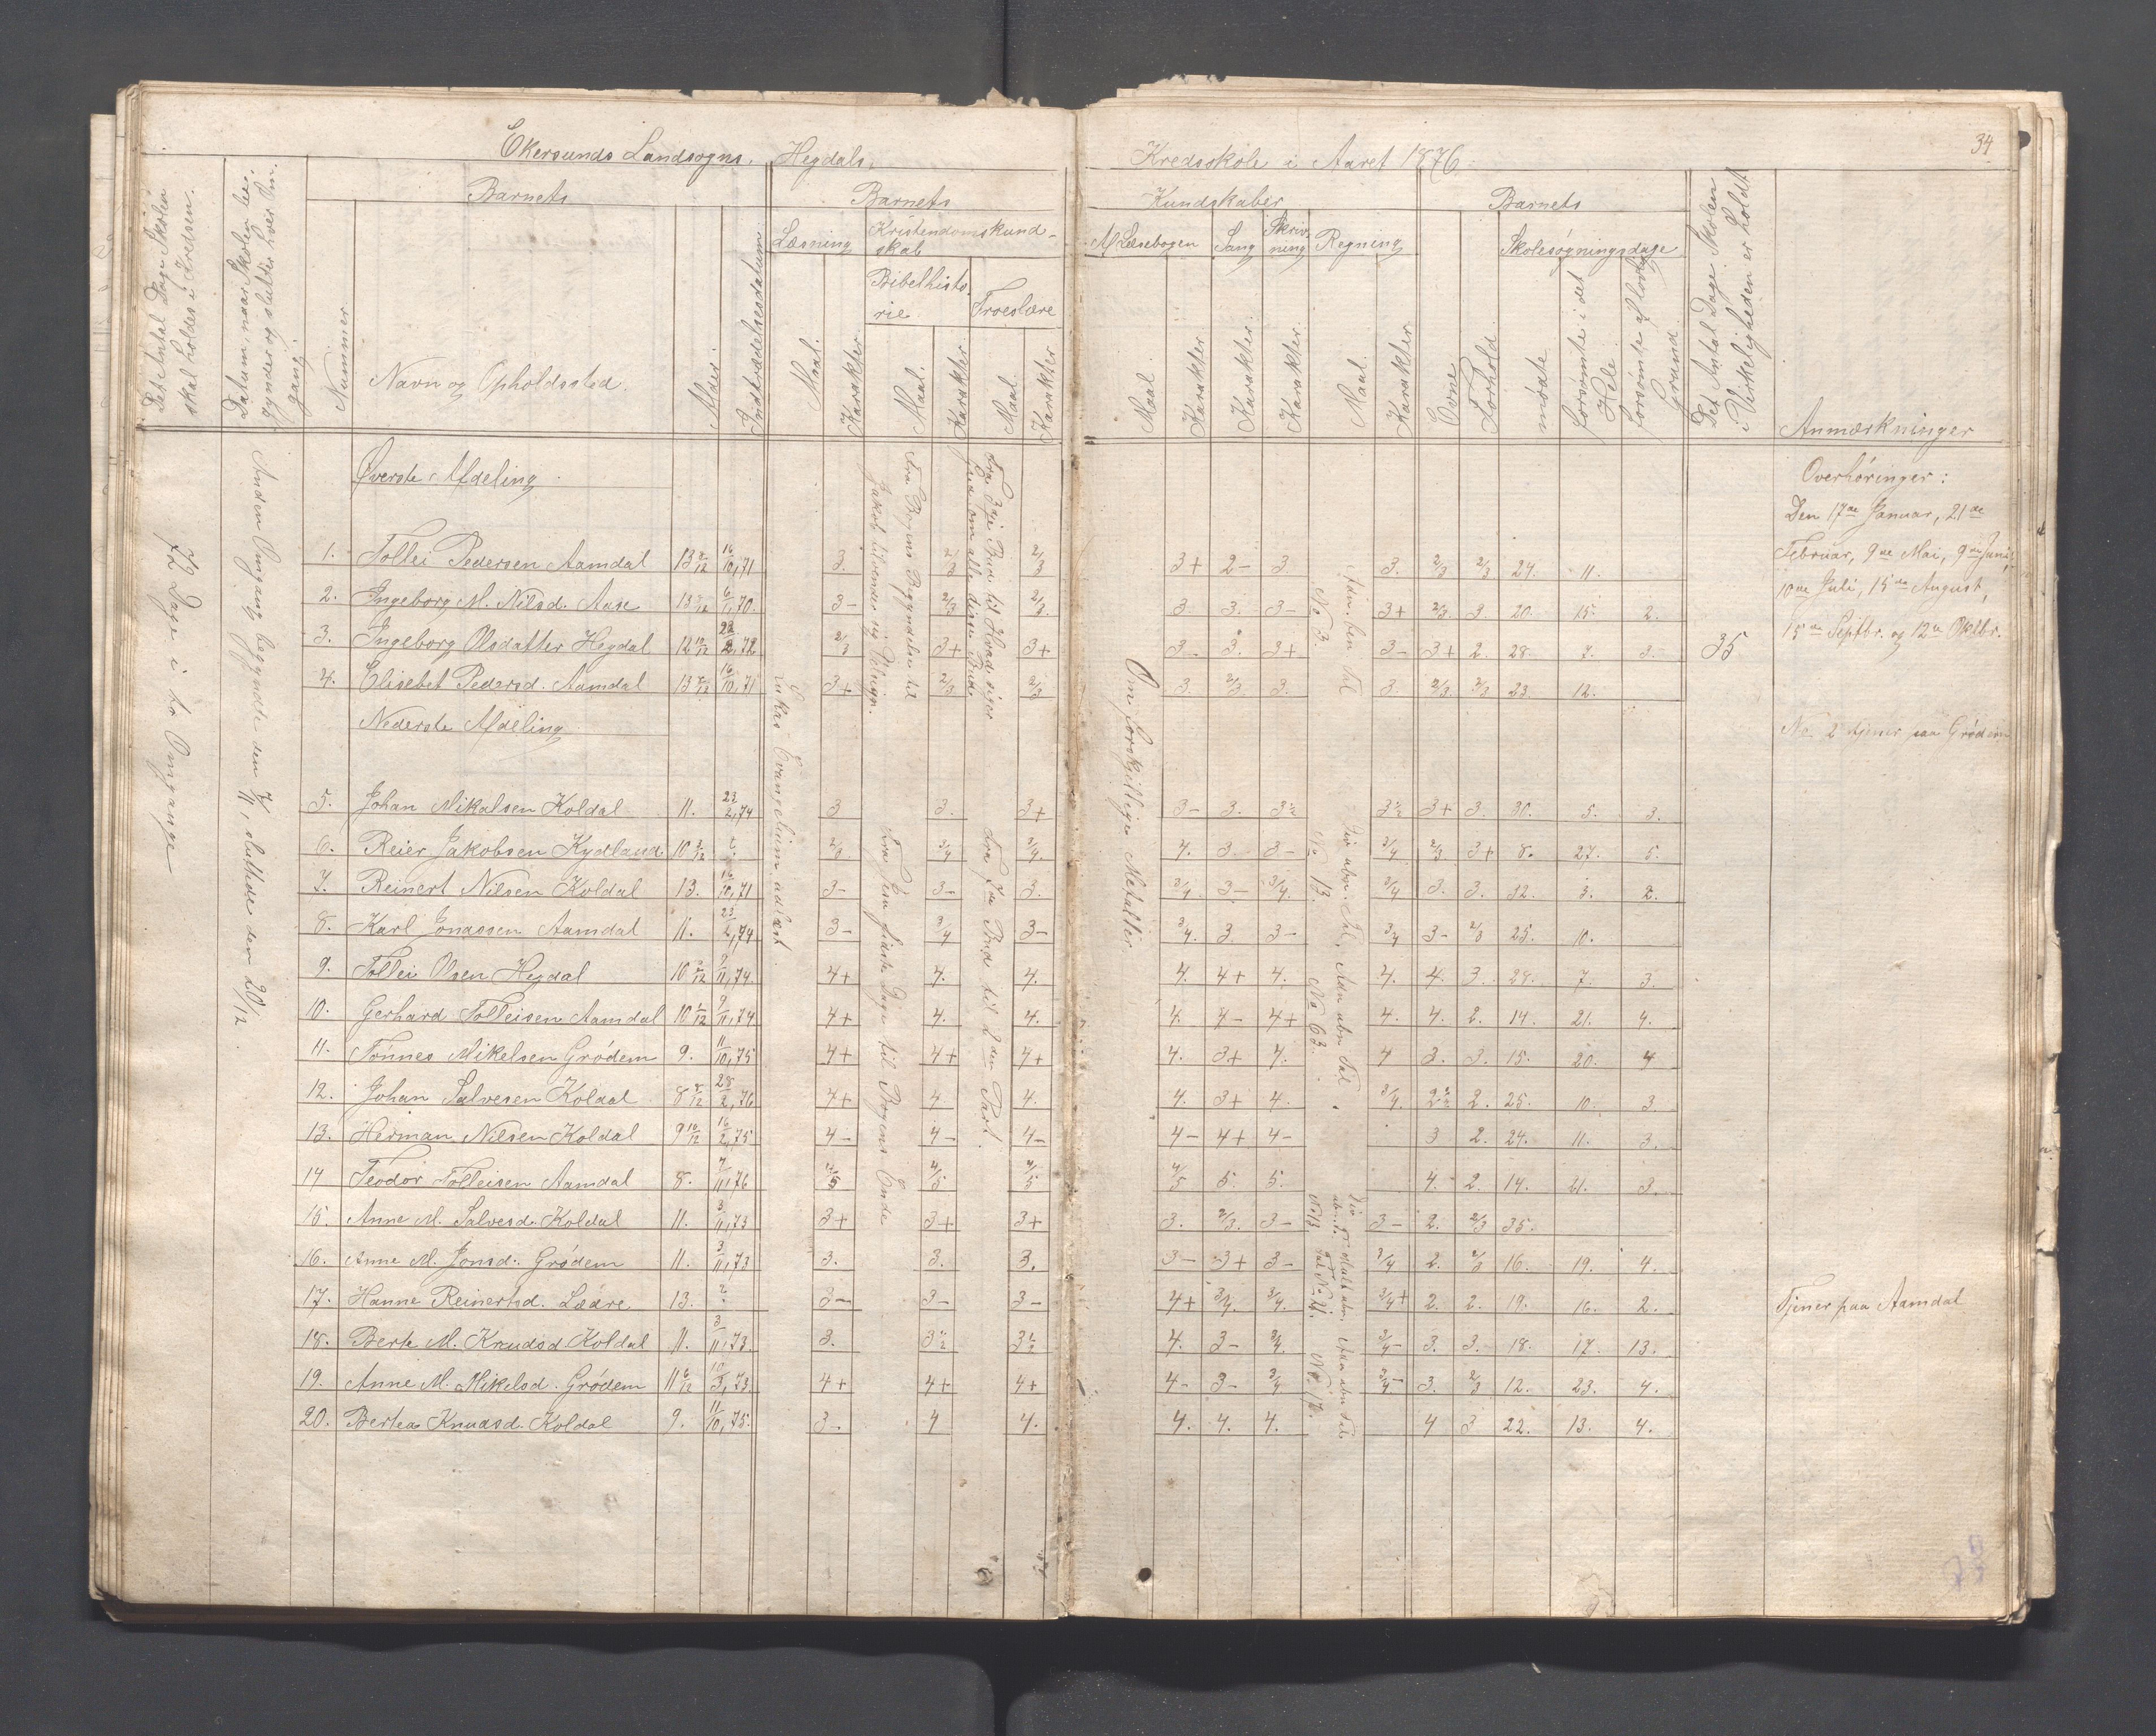 34
Ekersunds Landsogns, Hegdals, Kredsskole i Aaret 1876.
Det Antal Dage Skolen skal holdes i Kredsen.
Datum, naar Skolen begynder og slutter hver Omgang.
Barnets
Nummer
Navn og Opholdssted.
Alder.
Indtrædelsesdatum.
Barnets
Læsning
Maal.
Karakter.
Kristendomskundskab
Bibelhistorie
Maal.
Karakter.
Troeslære
Maal.
Karakter.
Kundskaber
Af Læsebogen
Maal.
Karakter.
Sang
Karakter.
Skrivning
Karakter.
Regning
Maal.
Karakter.
Barnets
Evne
Forhold.
Skolesøgningsdage
mødte
forsømte i det Hele.
forsømte af lovlig Grund.
Det Antal Dage Skolen i Virkeligheden er holdt
Anmærkninger
Dage i to Omgange
Anden Omgang begyndte den 7/11, sluttede den 20/12.
Lukas Evangelium udlæst.
Fra Bogens Begyndelse til Jakob
Fra 3die Bud til Hvad siger Gud om alle disse Bud.
Fra Jesu sidste Dage til Bogens Ende
Fra 1ste Bud til 2den Part.
Om forskjellige Metaller
No 3.
No 13.
No 63.
Øverste Afdeling
1. Tollei Pedersen Aamdal 13 8/12 16/10,71 3. 2/3 2/3 3+ 2- 3. 3. 2/3 2/3 24. 11.
2. Ingeborg M. Nilsd. Aase 13 6/1,70. 3- 2/3 2/3. 3. 3. 3- 3+ 2/3. 3. 20. 15. 2.
3. Ingeborg Olsdatter Hegdal 12 10/12 2/3 3+ 3+ 3- 3. 3+ 3- 3+ 2. 28. 7. 3.
4. Elisebet Pedersd. Aamdal 13 16/10,71 3+ 2/3 2/3 3. 2/3. 3. 3. 2/3. 2/3 23. 12.
35
Nederste Afdeling
5. Johan Mikalsen Koldal 11. 23/2,74 3 3. 3+ 3- 3. 3½ 3½ 3+ 3. 30. 5. 3.
6. Reier Jakobsen Kydland 10 3/12 ? 3/4. 3/4 3/4. 4. 3. 3- 3/4 2/3 3+ 8. 27. 5.
7. Reinert Nilsen Koldal 13. 16/10,71 3- 3- 3. 3/4 3- 3/4. 3/4 3. 3. 32. 3. 2.
8. Karl Jonassen Aamdal 11. 23/2,74 3- 3/4 3- 3/4. 3. 3- 3/4 3- 2/3 25. 10.
9. Tollei Olsen Hegdal 10 9/11,74. 4+ 4. 4. 4. 4+ 4. 4. 4. 3. 28. 7. 3.
10. Gerhard Tolleisen Aamdal 10 1/12 9/11,74 4+ 4. 4. 4. 4- 4+ 4. 4. 2. 14. 21. 4.
11. Tønnes Mikelsen Grødem 9. 11/10,75 4+ 4+ 4+ 4. 3+ 4. 4 3. 3. 15. 20. 4
12. Johan Salvesen Koldal 8 8/12 28/2,76 4+ 4 4. 4. 3+ 4. 3/4. 2½ 2. 25. 10. 3.
13. Herman Nilsen Koldal 9 10/12 16/2,75 4- 4- 4- 4- 4+ 4- 3 2. 24. 11. 3.
14 Teodor Tolleisen Aamdal 8. 7/11,76 4/5 4/5 4/5 4/5 5. 5. 4. 2. 14. 21. 3.
15. Anne M. Salvesd. Koldal 11. 3/11,73 3+ 3+ 3+ 3. 2/3. 3- 3- 2. 2/3 35.
16. Anne M. Jonsd. Grødem 11. 3/11,73 3. 3. 3. 3- 3+ 3- 3/4 2. 2/3 16. 19. 4.
17. Hanne Reinertsd. Lædre 13. ? 3- 3- 3- 4+ 3/4. 3/4. 3/4+ 2. 2. 19. 16. 2. Tjener paa Aamdal
18. Berte M. Knudsd. Koldal 11. 3/11,73. 3. 3½ 3½ 4. 3- 3/4 3/4- 3. 3. 18. 17. 13.
19. Anne M. Mikelsd. Grødem 11 6/12 10/3,73. 4+ 4+ 4+ 4- 3- 3/4 3/4- 3. 2/3 12. 23. 4.
20. Bertea Knudsd. Koldal 9. 11/10,75. 3- 4 4. 4. 4. 4. 4 3 22. 13. 4.
Overhøringer:
Den 17de Januar, 21de
Februar, 9de Mai, 9de Juni,
10de Juli, 15de August,
15de Septbr. og 12te Oktbr.
No 2 tjener paa Grødem